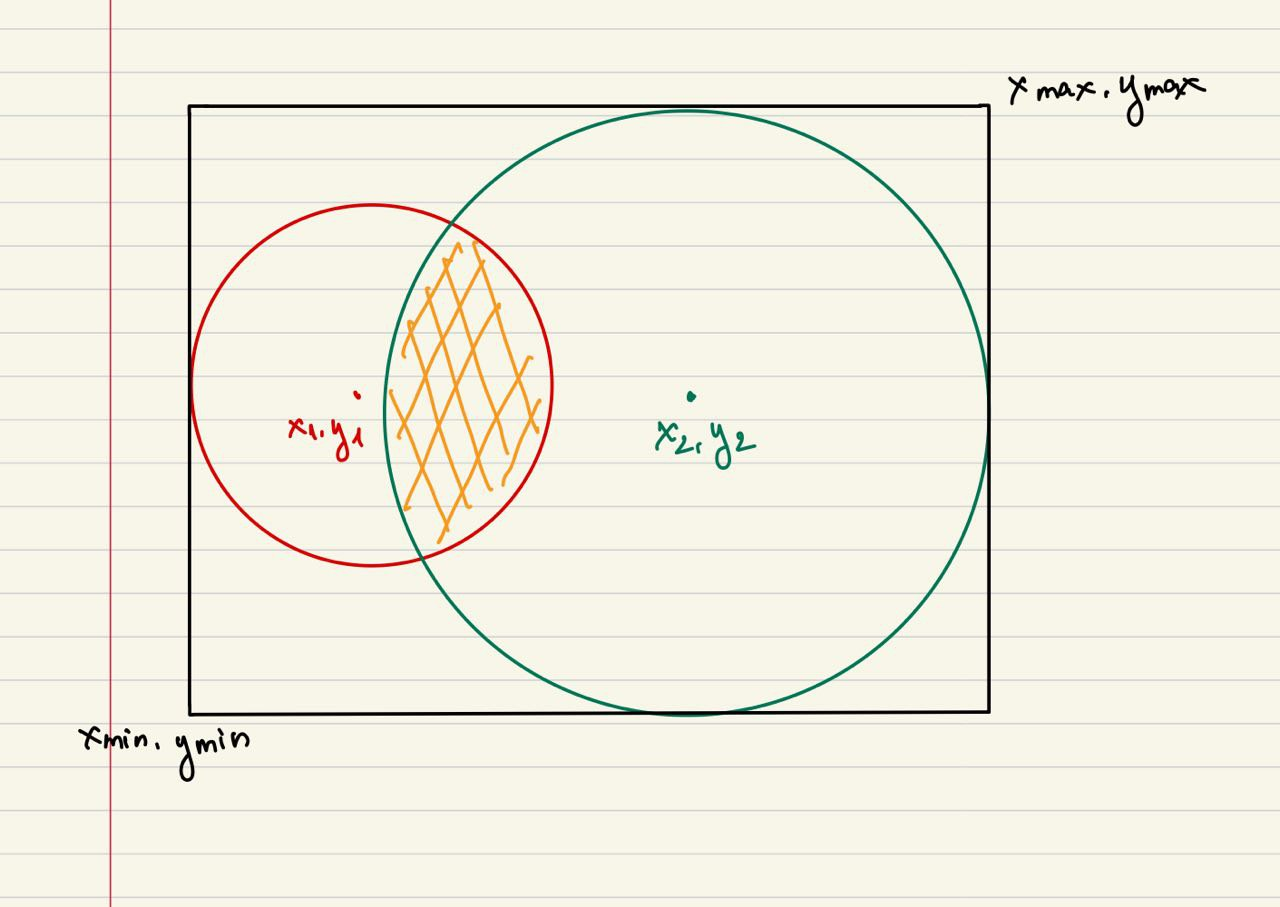 xmax, ymax
x1, y1
x2, y2
xmin, ymin